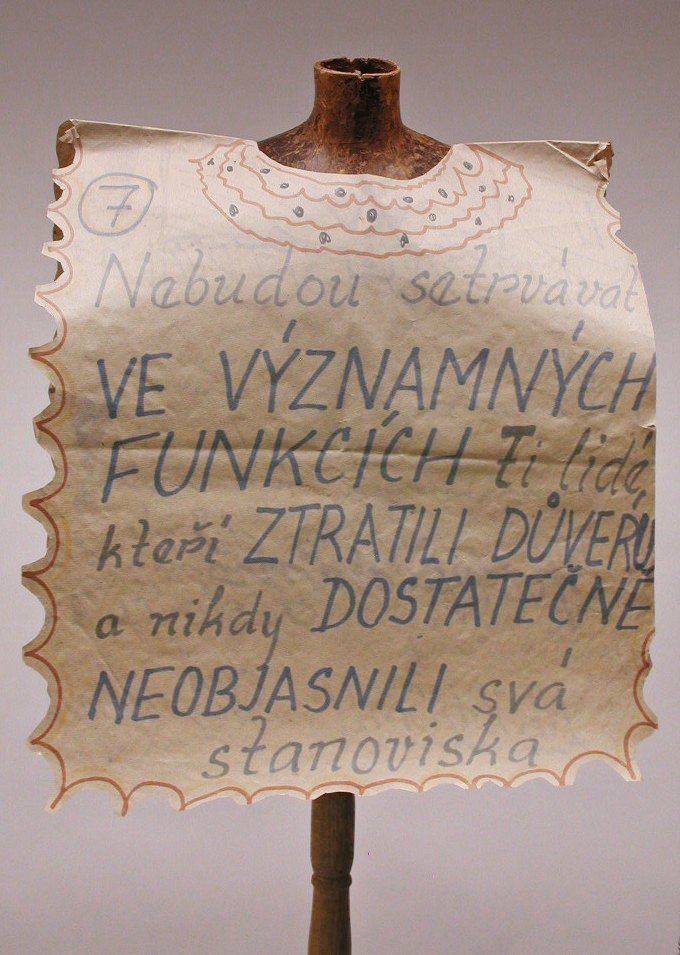 7
Nebudou setrvávat
VE VÝZNAMNÝCH
FUNKCÍCH Ti lidé,
kteří ZTRATILI DŮVĚRU
a nikdy DOSTATEČNĚ
NEOBJASNILI svá
stanoviska